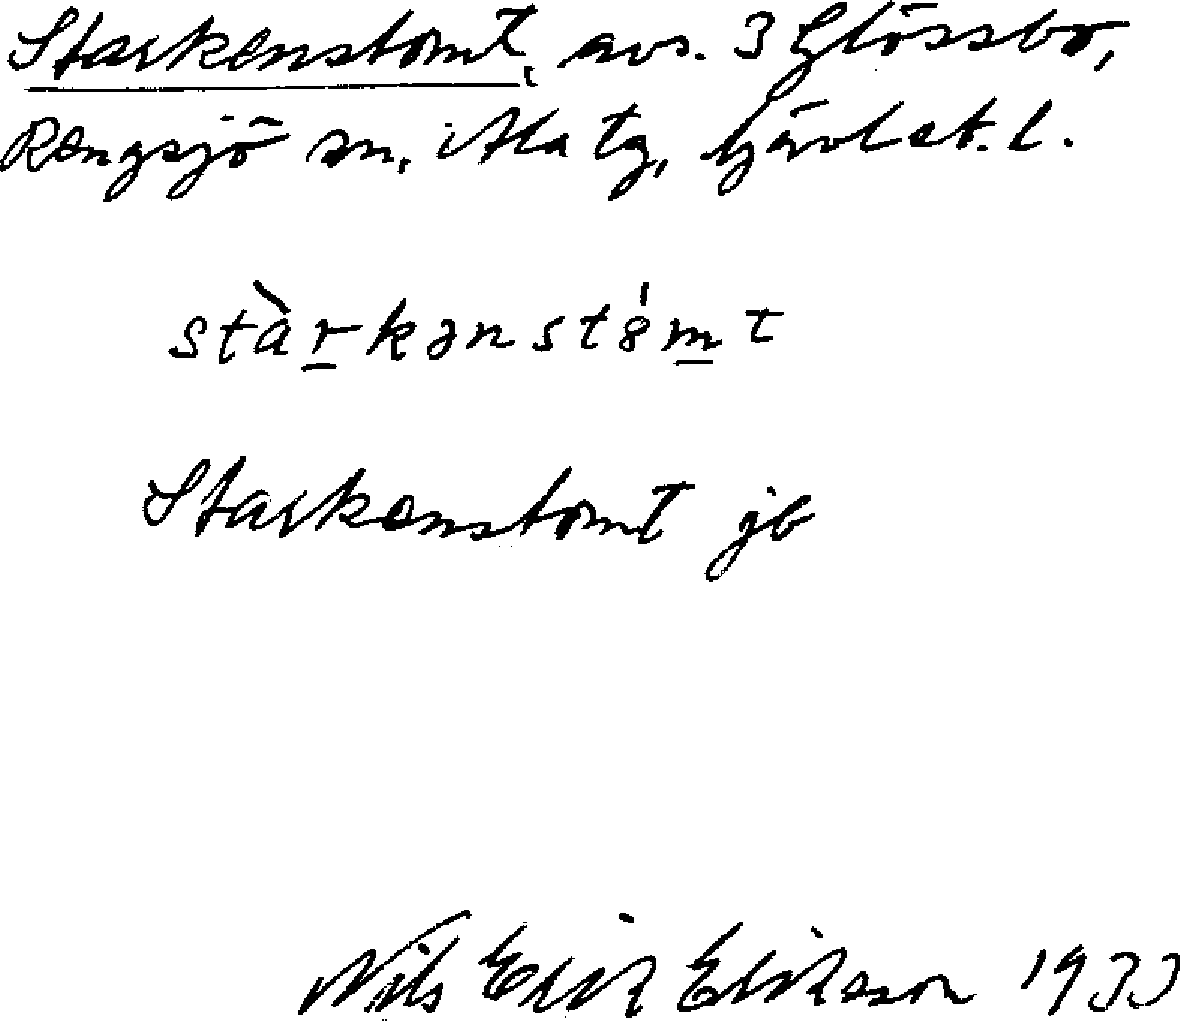 Starkenstomt, avs. 3 Glössbo,
Rengsjö sn, i Ala tg, Gävleb. l.
stàrkənst8́mt
Starkenstomt jb
Nils Erik Erikson 1933